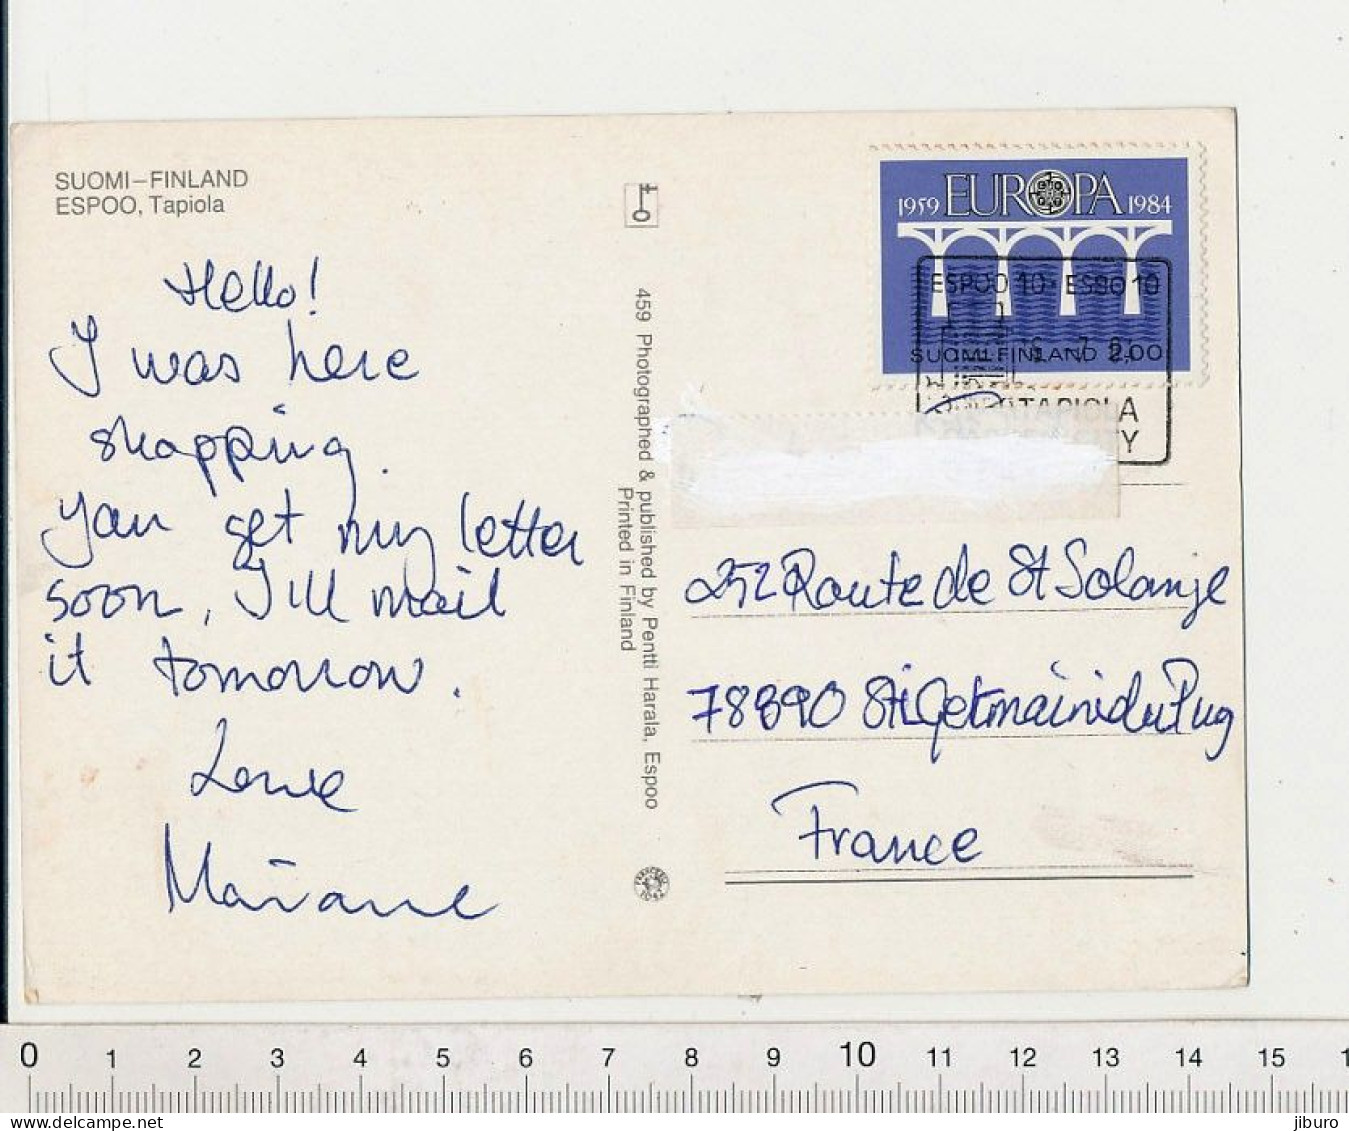 SUOMI–FINLAND
ESPOO, Tapiola
Hello!
I was here
shopping.
You get my letter
soon, I'll mail
it tomorrow.
Love
459 Photographed & published by Pentti Harala, Espoo
Printed in Finland
1959 EUROPA 1984
ESPOO 10 · ESBO 10
SUOMI-FINLAND 2,00
TAPIOLA
252 Route de St Solange
France
0 1 2 3 4 5 6 7 8 9 10 11 12 13 14 15
jiburo